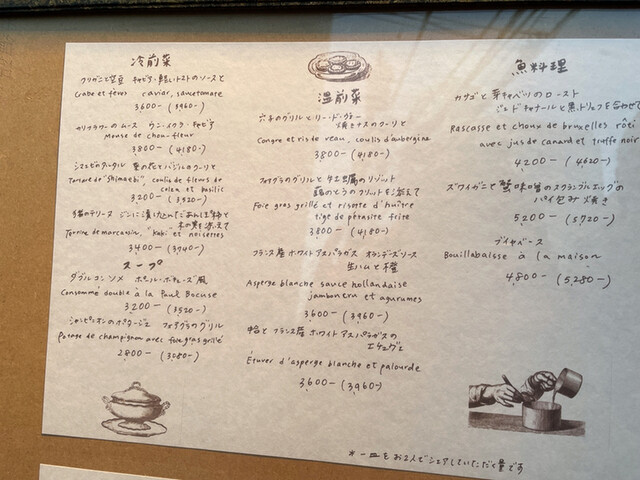 冷前菜
クリガニと空豆 キャビア・軽いトマトのソースと
Crabe et feves caviar, sauce tomate
3600- (3960-)
カリフラワーのムース ウニ・イクラ・キャビア
Mousse de chou-fleur
3800- (4180-)
シマエビのタルタル 菜の花とバジルのクーリと
Tartare de "Shimaebi", coulis de fleurs de
colza et basilic
3200- (3520-)
のテリーヌ ジンに漬け込んだあんぽ柿と
木の実を添えて
Terrine de marcassin, "Kaki et noisettes
3400- (3740-)
スープ
ダブルコンソメ ポール・ボキューズ風
Consommé double à la Paul Bocuse
3200- (3520-)
シャンピニオンのポタージュ フォアグラのグリル
Potage de champignon avec foie gras grillé
2800- (3080-)
温前菜
穴子のグリルとリー・ド・ヴォー
焼きナスのクーリと
Congre et ris de veau, coulis d'aubergine
3800- (4180-)
フォアグラのグリルと牡蠣のリゾット
蕗のとうのフリットを添えて
Foie gras grillé et risotto d'huître
tige de pétasite frite
3800- (4180-)
フランス産ホワイトアスパラガス オランデーズソース
生ハムと橙
Asperge blanche sauce hollandaise
jambon cru et agurumes
3600- (3960-)
蛤とフランス産ホワイトアスパラガスの
エチュヴェ
Étuver d'asperge blanche et palourde
3,600- (3960-)
魚料理
カサゴと芽キャベツのロースト
ジュドキャナールと黒トリュフを合わせて
Rascasse et choux de bruxelles rôti
avec jus de canard et truffe noir
4200- (4620-)
ズワイガニと蟹味噌のスクランブルエッグの
パイ包み焼き
5200- (5720-)
ブイヤベース
Bouillabaisse à la maison
4,800- (5,280-)
*一皿をお2人でシェアしていただく量です